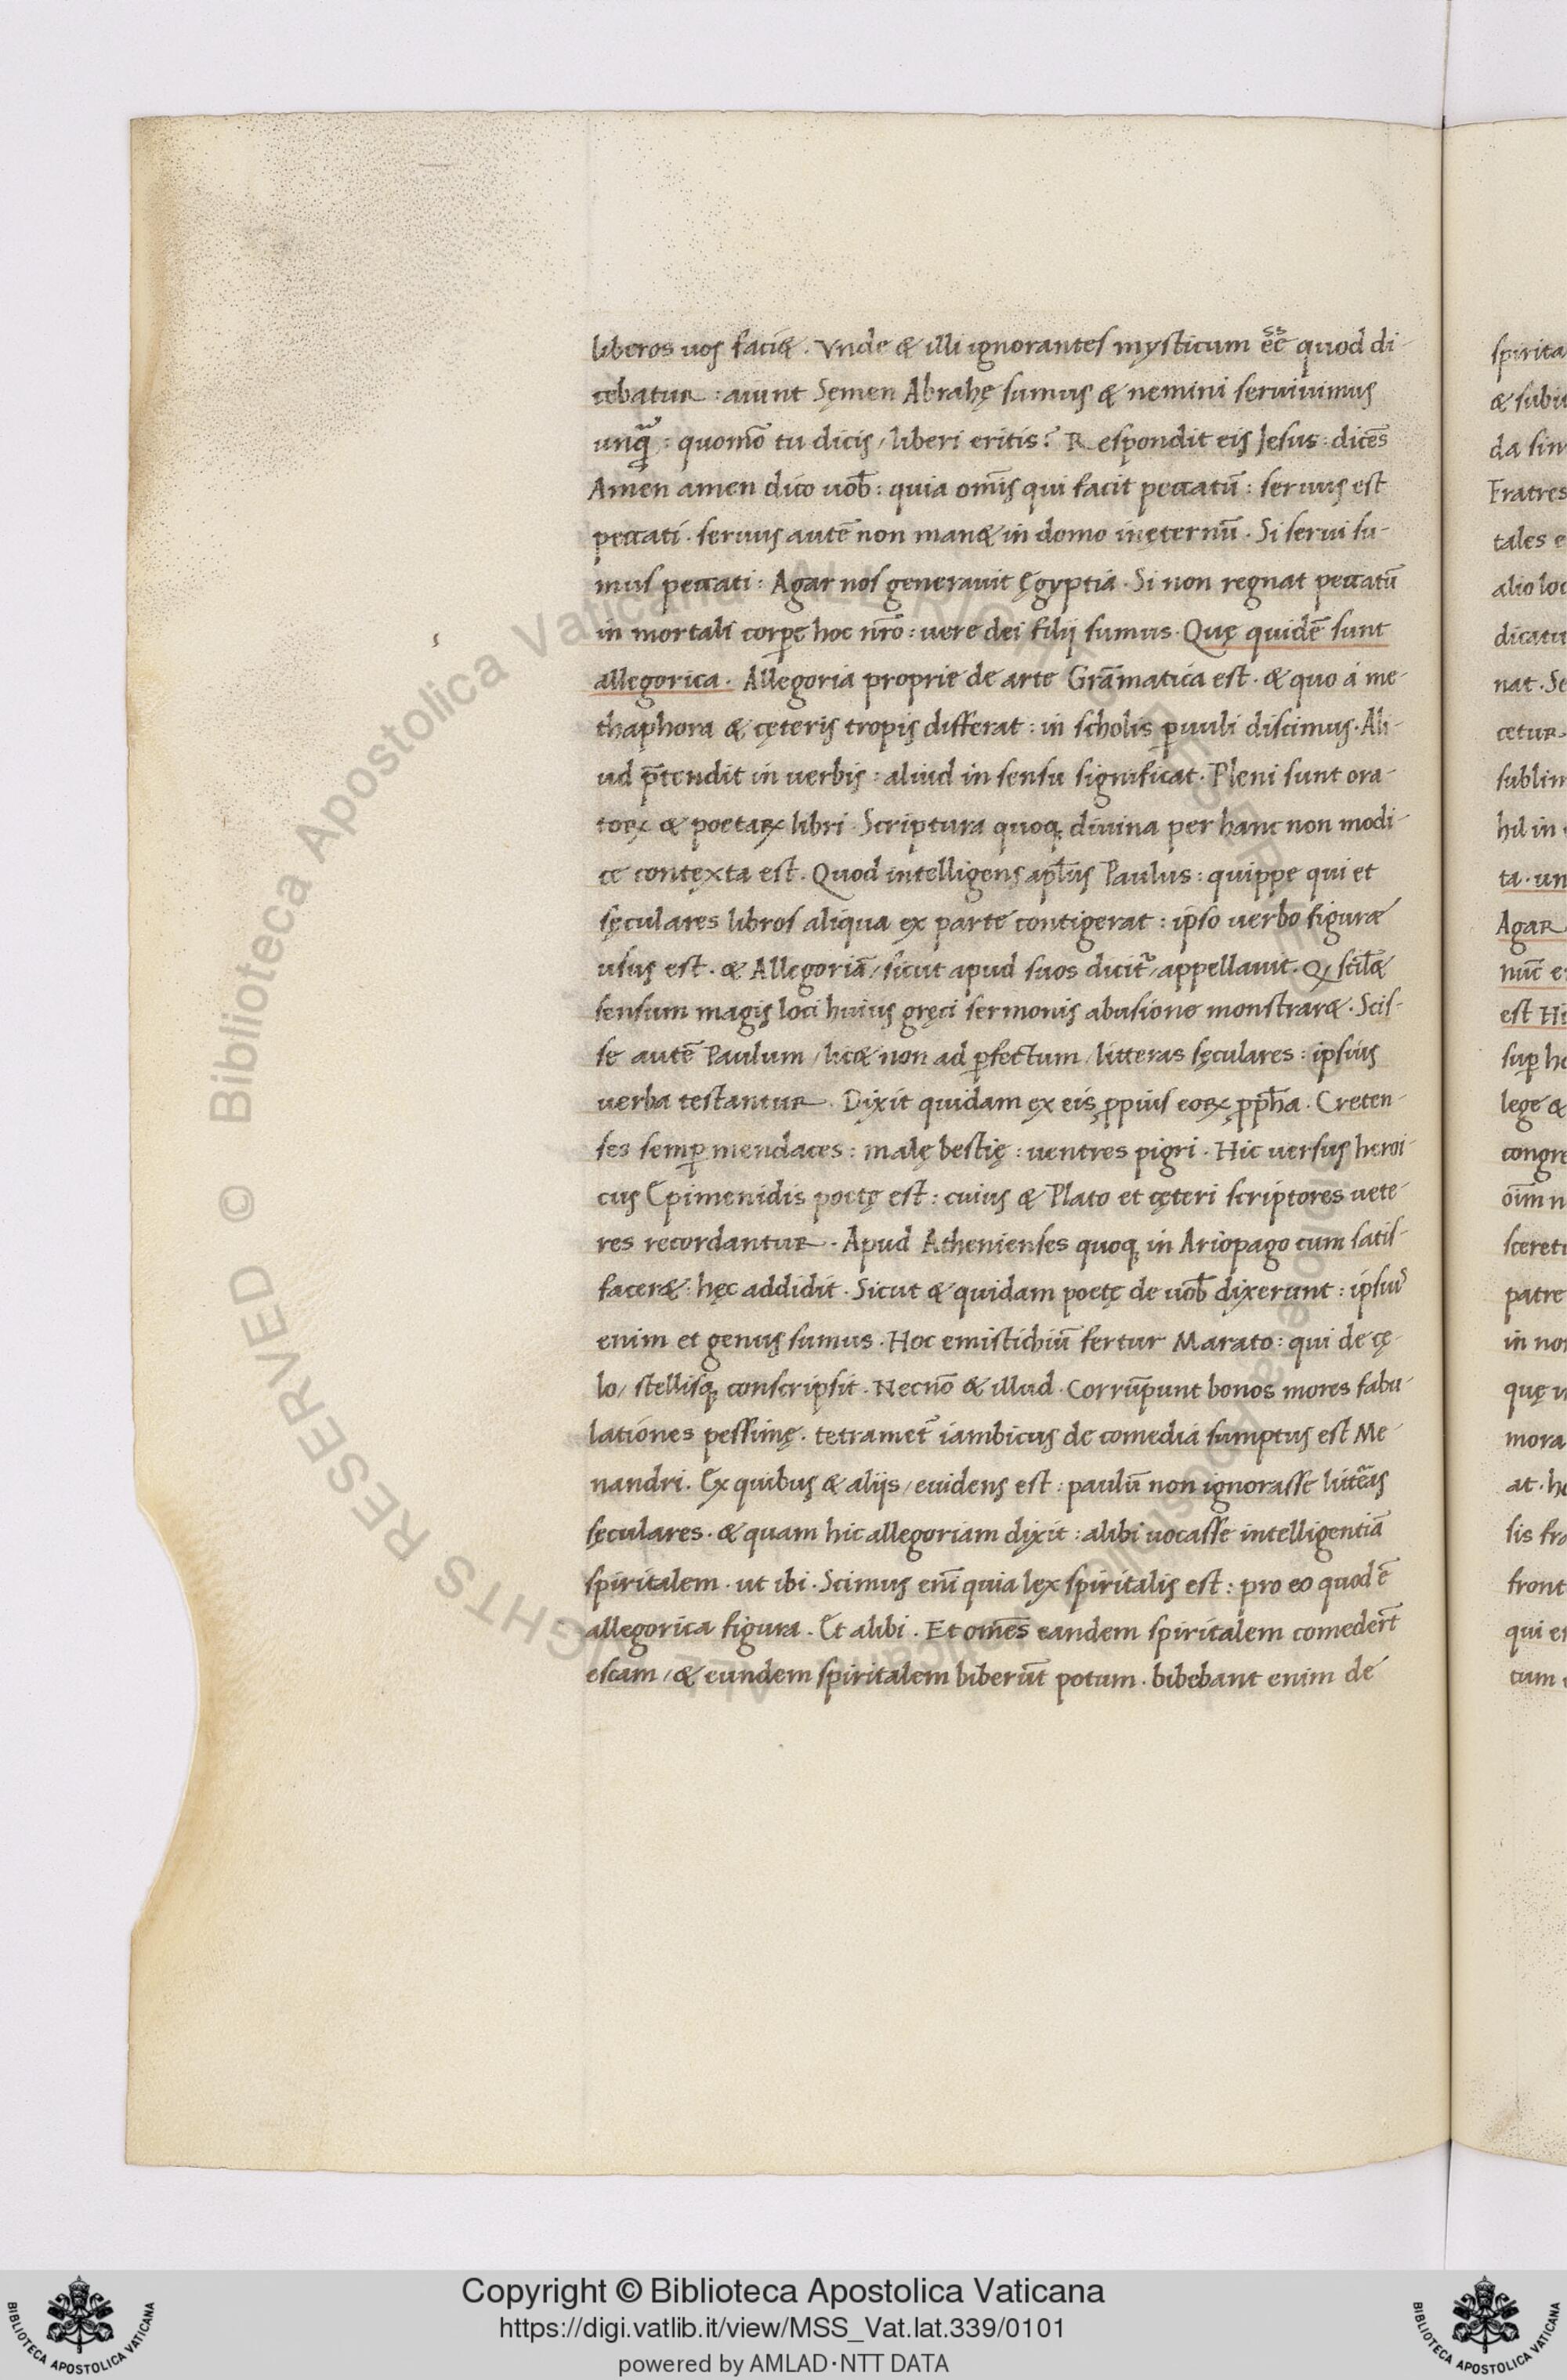 liberos uos faci&. Vnde & illi ignorantes mysticum eē quod di-
cebatur: aiunt Sęmen Abrahę sumus & nemini seruiuimus
unq̄: quomō tu dicis, liberi eritis? Respondit eis Jesus: dicēs
Amen amen dico uob̄: quia om̄is qui facit peccatū: seruus est
peccati. seruus autē non man& in domo inęternū. Si serui su-
mus peccati: Agar nos generauit Ęgyptia. Si non regnat peccatū
in mortali corꝑe hoc nr̄o: uere dei filij sumus. Quę quidē sunt
allegorica. Allegoria proprie de arte Grāmatica est. & quo á me-
thaphora & cęteris tropis differat: in scholis ꝑuuli discimus. Ali-
ud p̄tendit in uerbis: aliud in sensu significat. Pleni sunt ora-
toꝝ & poetaꝝ libri. Scriptura quoq; diuina per hanc non modi-
ce contexta est. Quod intelligens apl̄us Paulus: quippe qui et
sęculares libros aliqua ex parte contigerat: ipso uerbo figuræ
usus est. & Allegoriā, sicut apud suos dicit᷑, appellauit. Qꝫ scil&
sensum magis loci huius gręci sermonis abusione monstrar&. Scis-
se autē Paulum, lic& non ad ꝑfectum, litteras sęculares: ipsius
uerba testantur. Dixit quidam ex eis ꝓpius eoꝝ ꝓph̄a. Creten-
ses semꝑ mendaces: malę bestię: uentres pigri. Hic uersus heroi-
cus Epimenidis poetę est: cuius & Plato et cęteri scriptores uete-
res recordantur. Apud Athenienses quoq; in Ariopago cum satis-
facer&: hęc addidit. Sicut & quidam poetę de uob̄ dixerunt: ipsiuꝰ
enim et genus sumus. Hoc emistichiū fertur Marato: qui de cę-
lo, stellisq; conscripsit. Necnō & illud. Corrūpunt bonos mores fabu-
lationes pessimę. tetramet᷑ iambicus de comedia sumptus est Me-
nandri. Ex quibus & alijs, euidens est: paulū non ignorasse littēas
sęculares. & quam hic allegoriam dixit: alibi uocasse intelligentiā
spiritalem. ut ibi. Scimus eni᷑ quia lex spiritalis est: pro eo quod ē
allegorica figura. Et alibi. Et omēs eandem spiritalem comeder̄t
escam, & eundem spiritalem biberūt potum. bibebant enim de
spirita
& subi
da sin
Fratres
tales e
alio loc
dicatu
nat. Se
cetur
sublim
hil in
ta. un
Agar
nūc e
est Hi
suꝑ ho
lege &
congre
oīm n
sceret
patre
in no
quę u
mora
at. ho
sis fra
front
qui e
tum
© Biblioteca Apostolica Vaticana ALL RIGHTS RESERVED
Copyright © Biblioteca Apostolica Vaticana
https://digi.vatlib.it/view/MSS_Vat.lat.339/0101
powered by AMLAD·NTT DATA
BIBLIOTECA APOSTOLICA VATICANA
BIBLIOTECA APOSTOLICA VATICANA